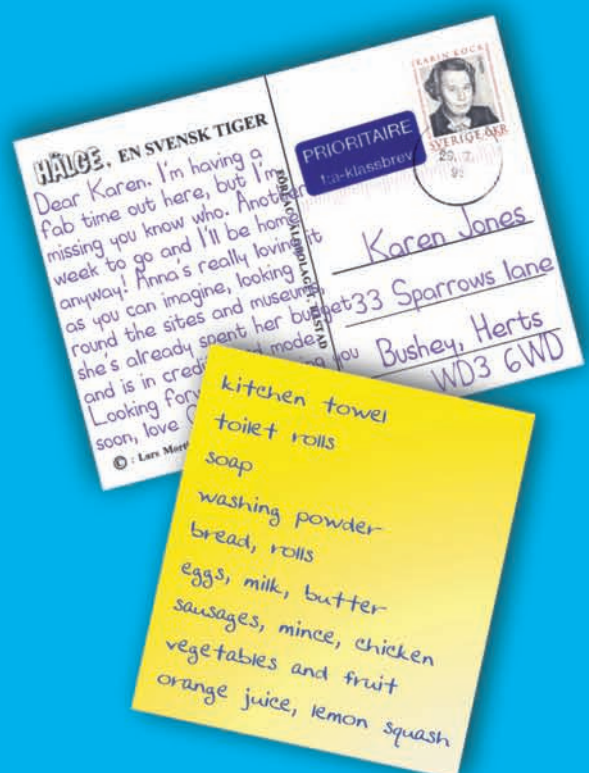 HÄLGE, EN SVENSK TIGER
Dear Karen. I'm having a
fab time out here, but I'm
missing you know who. Another
week to go and I'll be home
anyway! Anna's really loving it
as you can imagine, looking
round the sites and museums,
she's already spent her budget
and is in credit mode
Looking you
soon, love
© : Lars
PRIORITAIRE
1:a-klassbrev
KARIN KOCK
SVERIGE 6KR
Karen Jones
33 Sparrows lane
Bushey, Herts
WD3 6WD
kitchen towel
toilet rolls
soap
washing powder
bread, rolls
eggs, milk, butter
sausages, mince, chicken
vegetables and fruit
orange juice, lemon squash